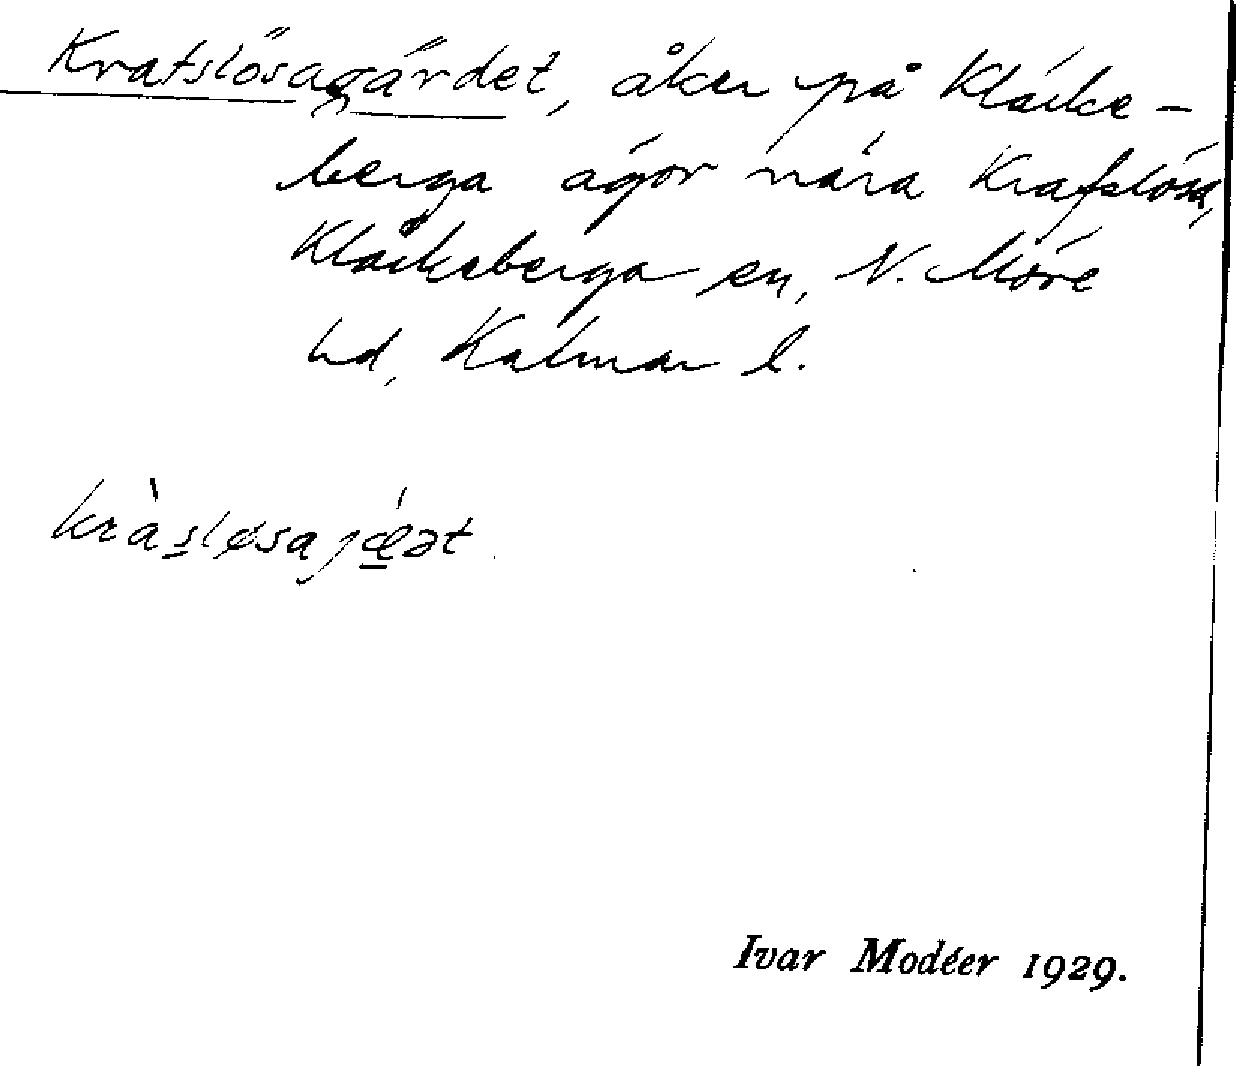 Krafslösagärdet, åker på Kläcke-
berga ägor nära Krafslösa,
Kläckeberga sn, N. Möre
hd, Kalmar l.
kràsløsajǽət
Ivar Modéer 1929.